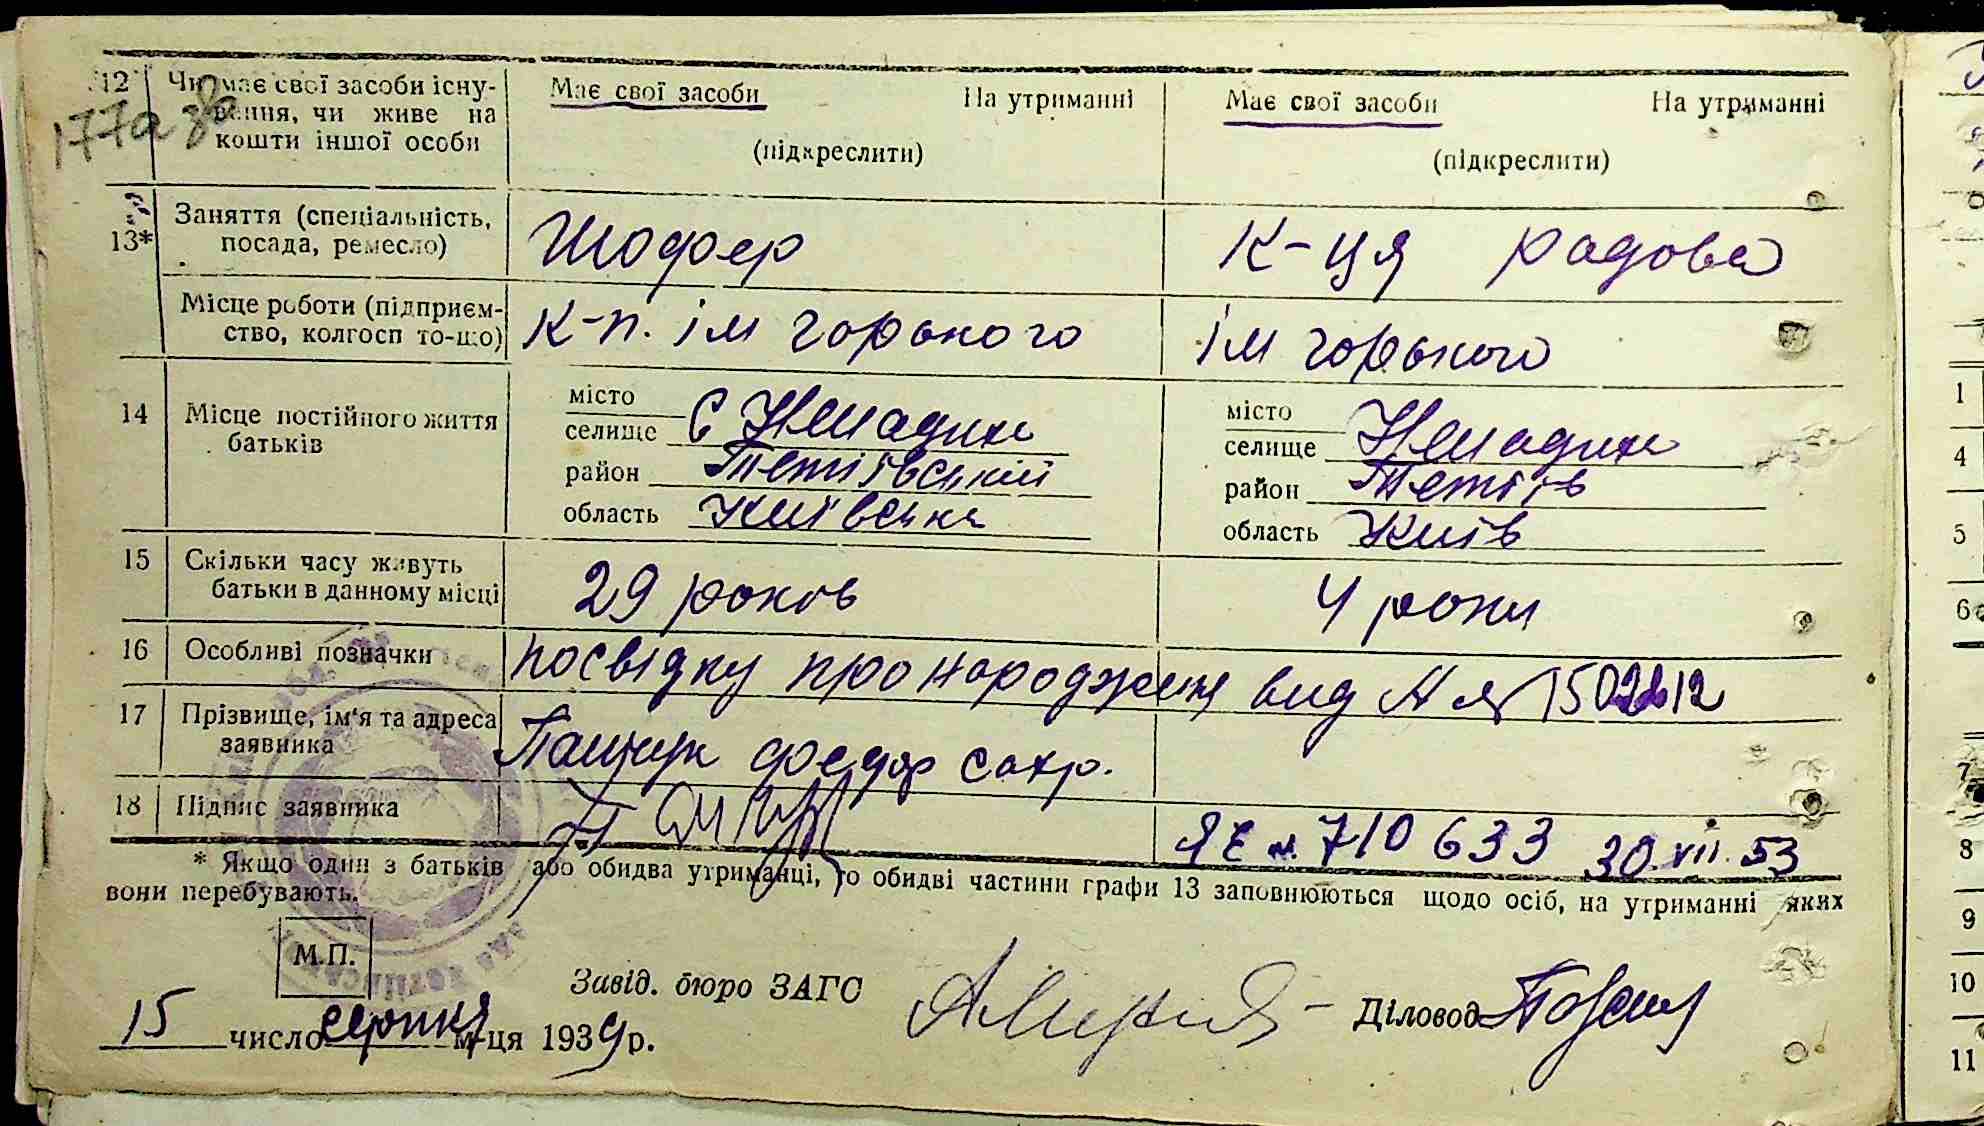 177а зв
12 Чи має свої засоби існу-
вання, чи живе на
кошти іншої особи
Має свої засоби На утриманні
(підкреслити)
Має свої засоби На утриманні
(підкреслити)
13* Заняття (спеціальність,
посада, ремесло)
Шофер
к-ця радова
Місце роботи (підприєм-
ство, колгосп то-що)
к-п. ім горького
ім горького
14 Місце постійного життя
батьків
місто
селище с Ненадиха
район Тетіївський
область Київська
місто
селище Ненадиха
район Тетіїв
область Київ
15 Скільки часу живуть
батьки в данному місці
29 років
4 роки
16 Особливі позначки
посвідку про народжен вид № 
17 Прізвище, ім'я та адреса
заявника
федор сахр.
18 Підпис заявника
ЯЕ № 710633 30.VII.53
* Якщо один з батьків або обидва утриманці, то обидві частини графи 13 заповнюються щодо осіб, на утриманні яких
вони перебувають.
М.П.
Завід. бюро ЗАГС
Діловод
15 число серпня м-ця 1939 р.
1
4
5
6
7
8
9
10
11